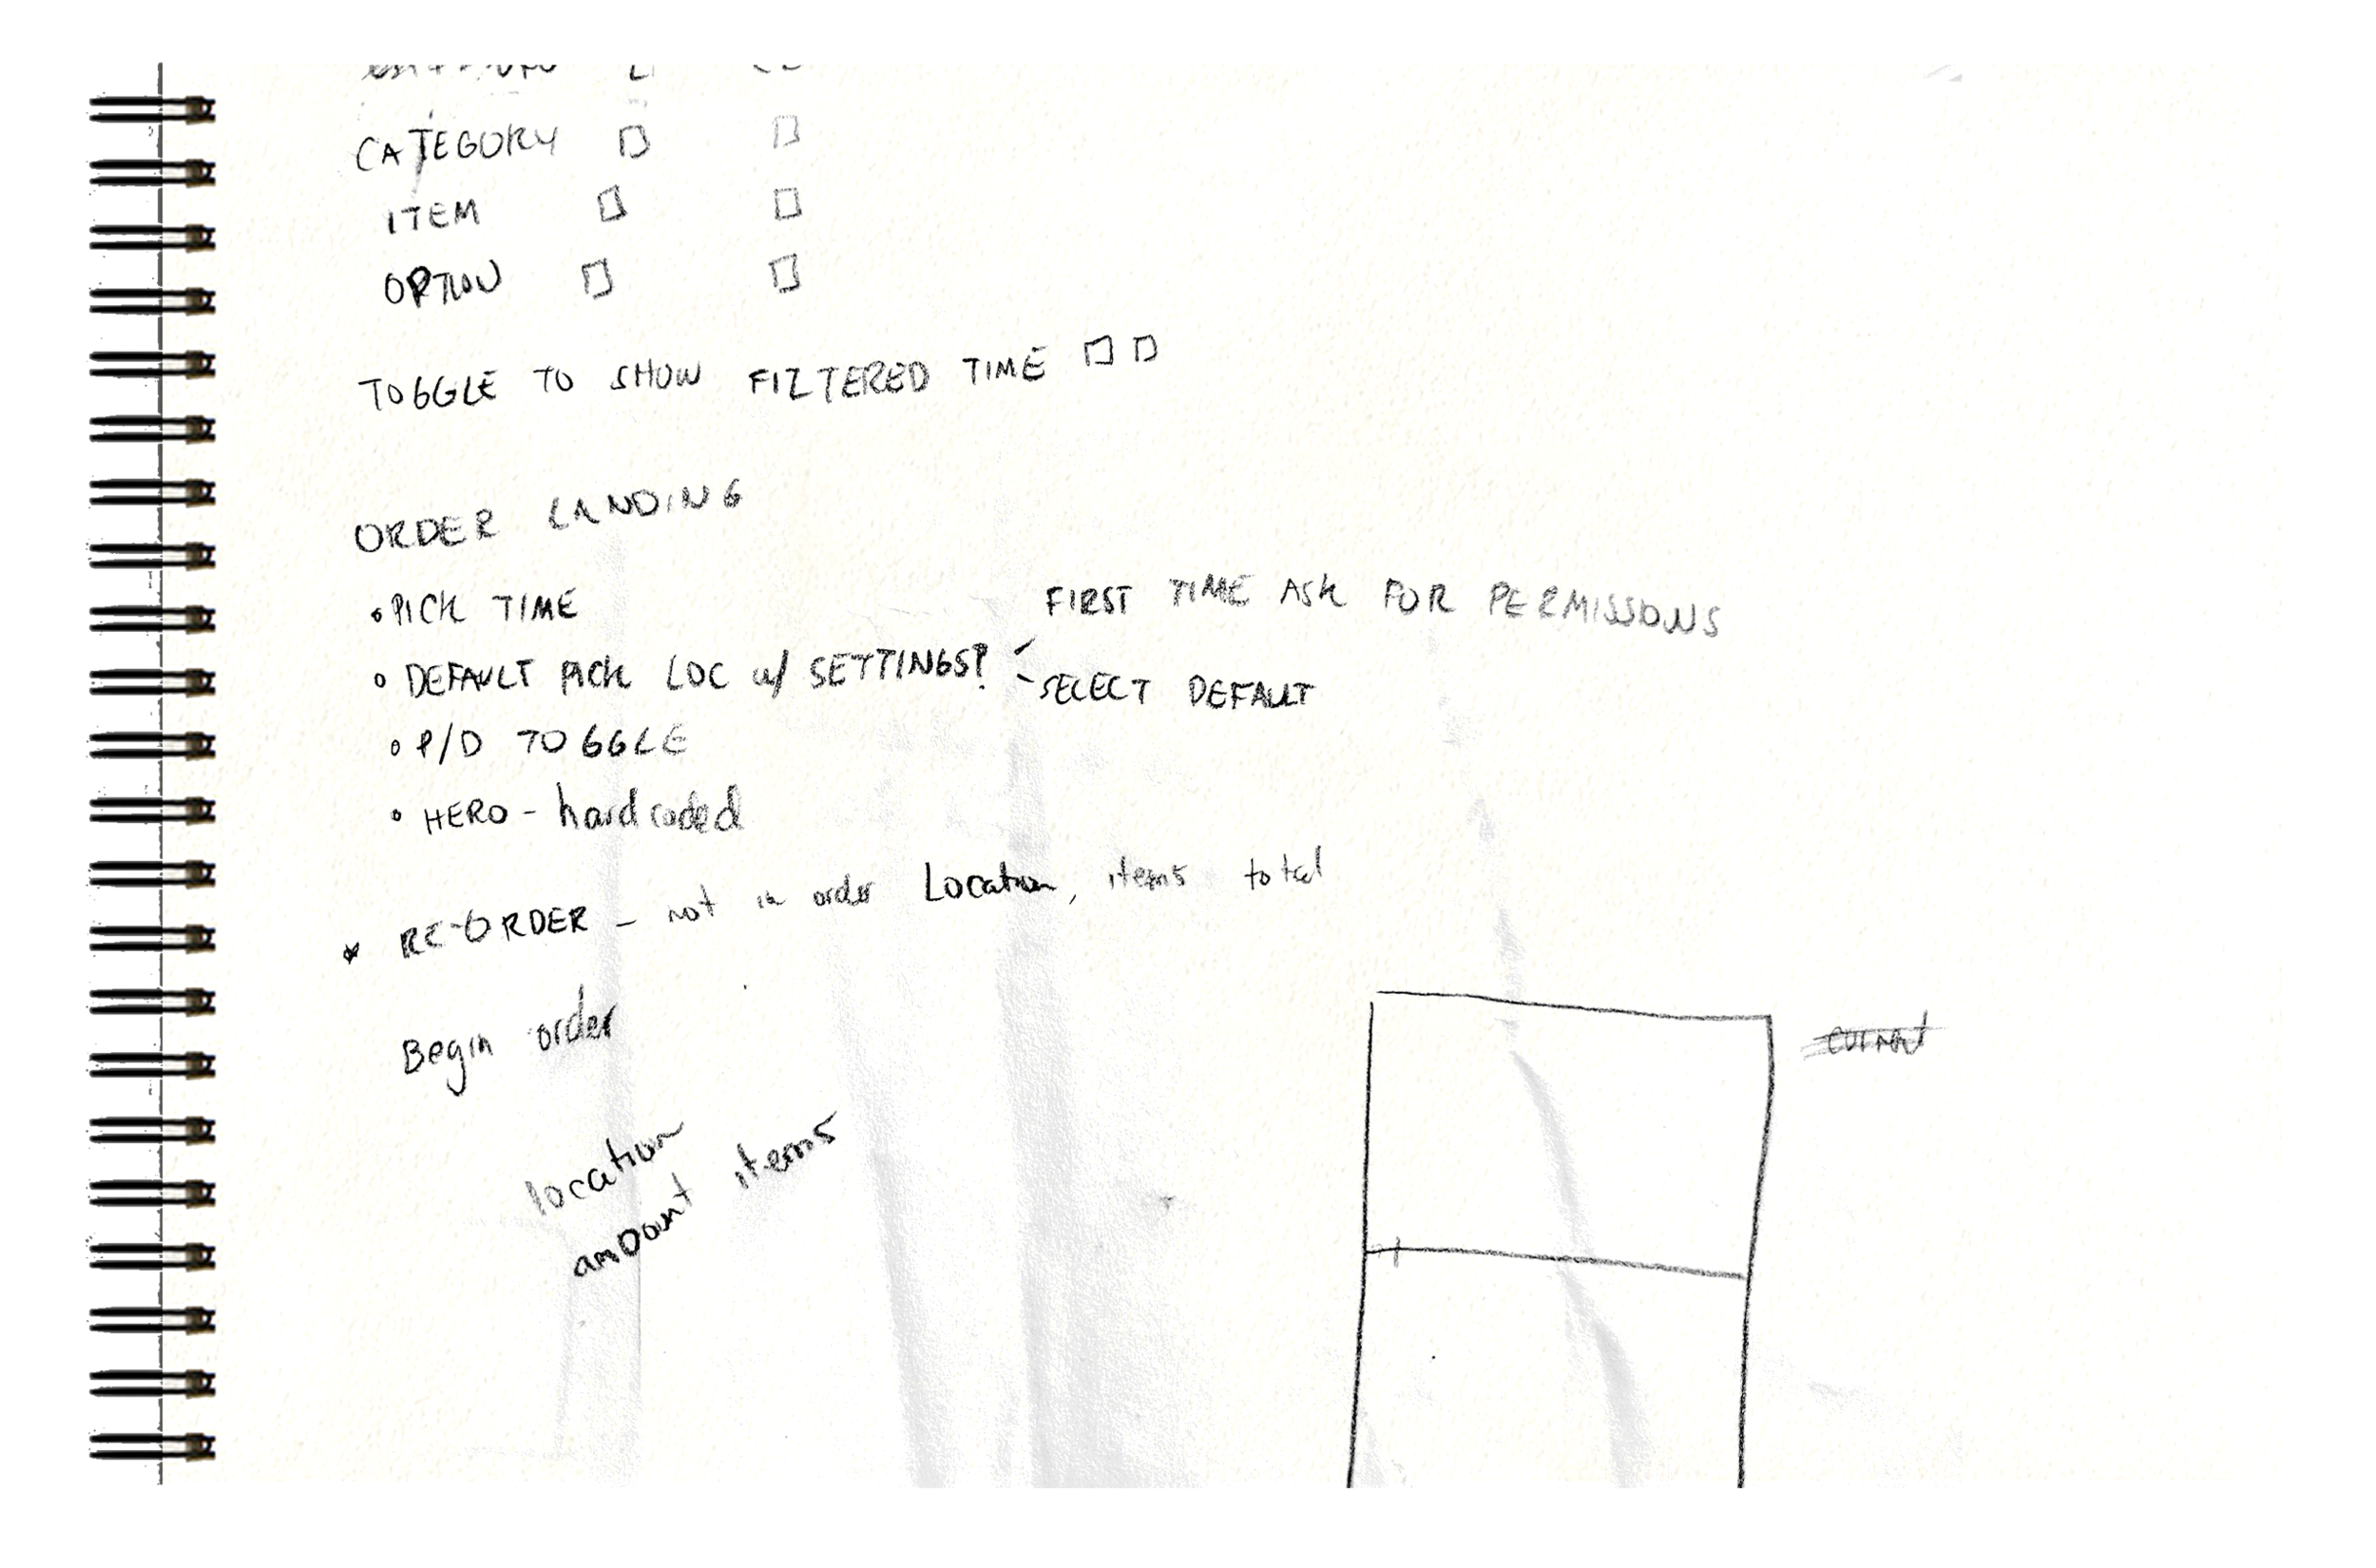 CATEGORY □ □
ITEM □ □
OPTION □ □
TOGGLE TO SHOW FILTERED TIME □ □
ORDER LANDING
• PICK TIME
FIRST TIME ASK FOR PERMISSONS
• DEFAULT PICK LOC w/ SETTINGS?
- SELECT DEFAULT
• P/D TOGGLE
• HERO - hardcoded
* RE-ORDER - not in order Location, items total
Begin order
location
amount items